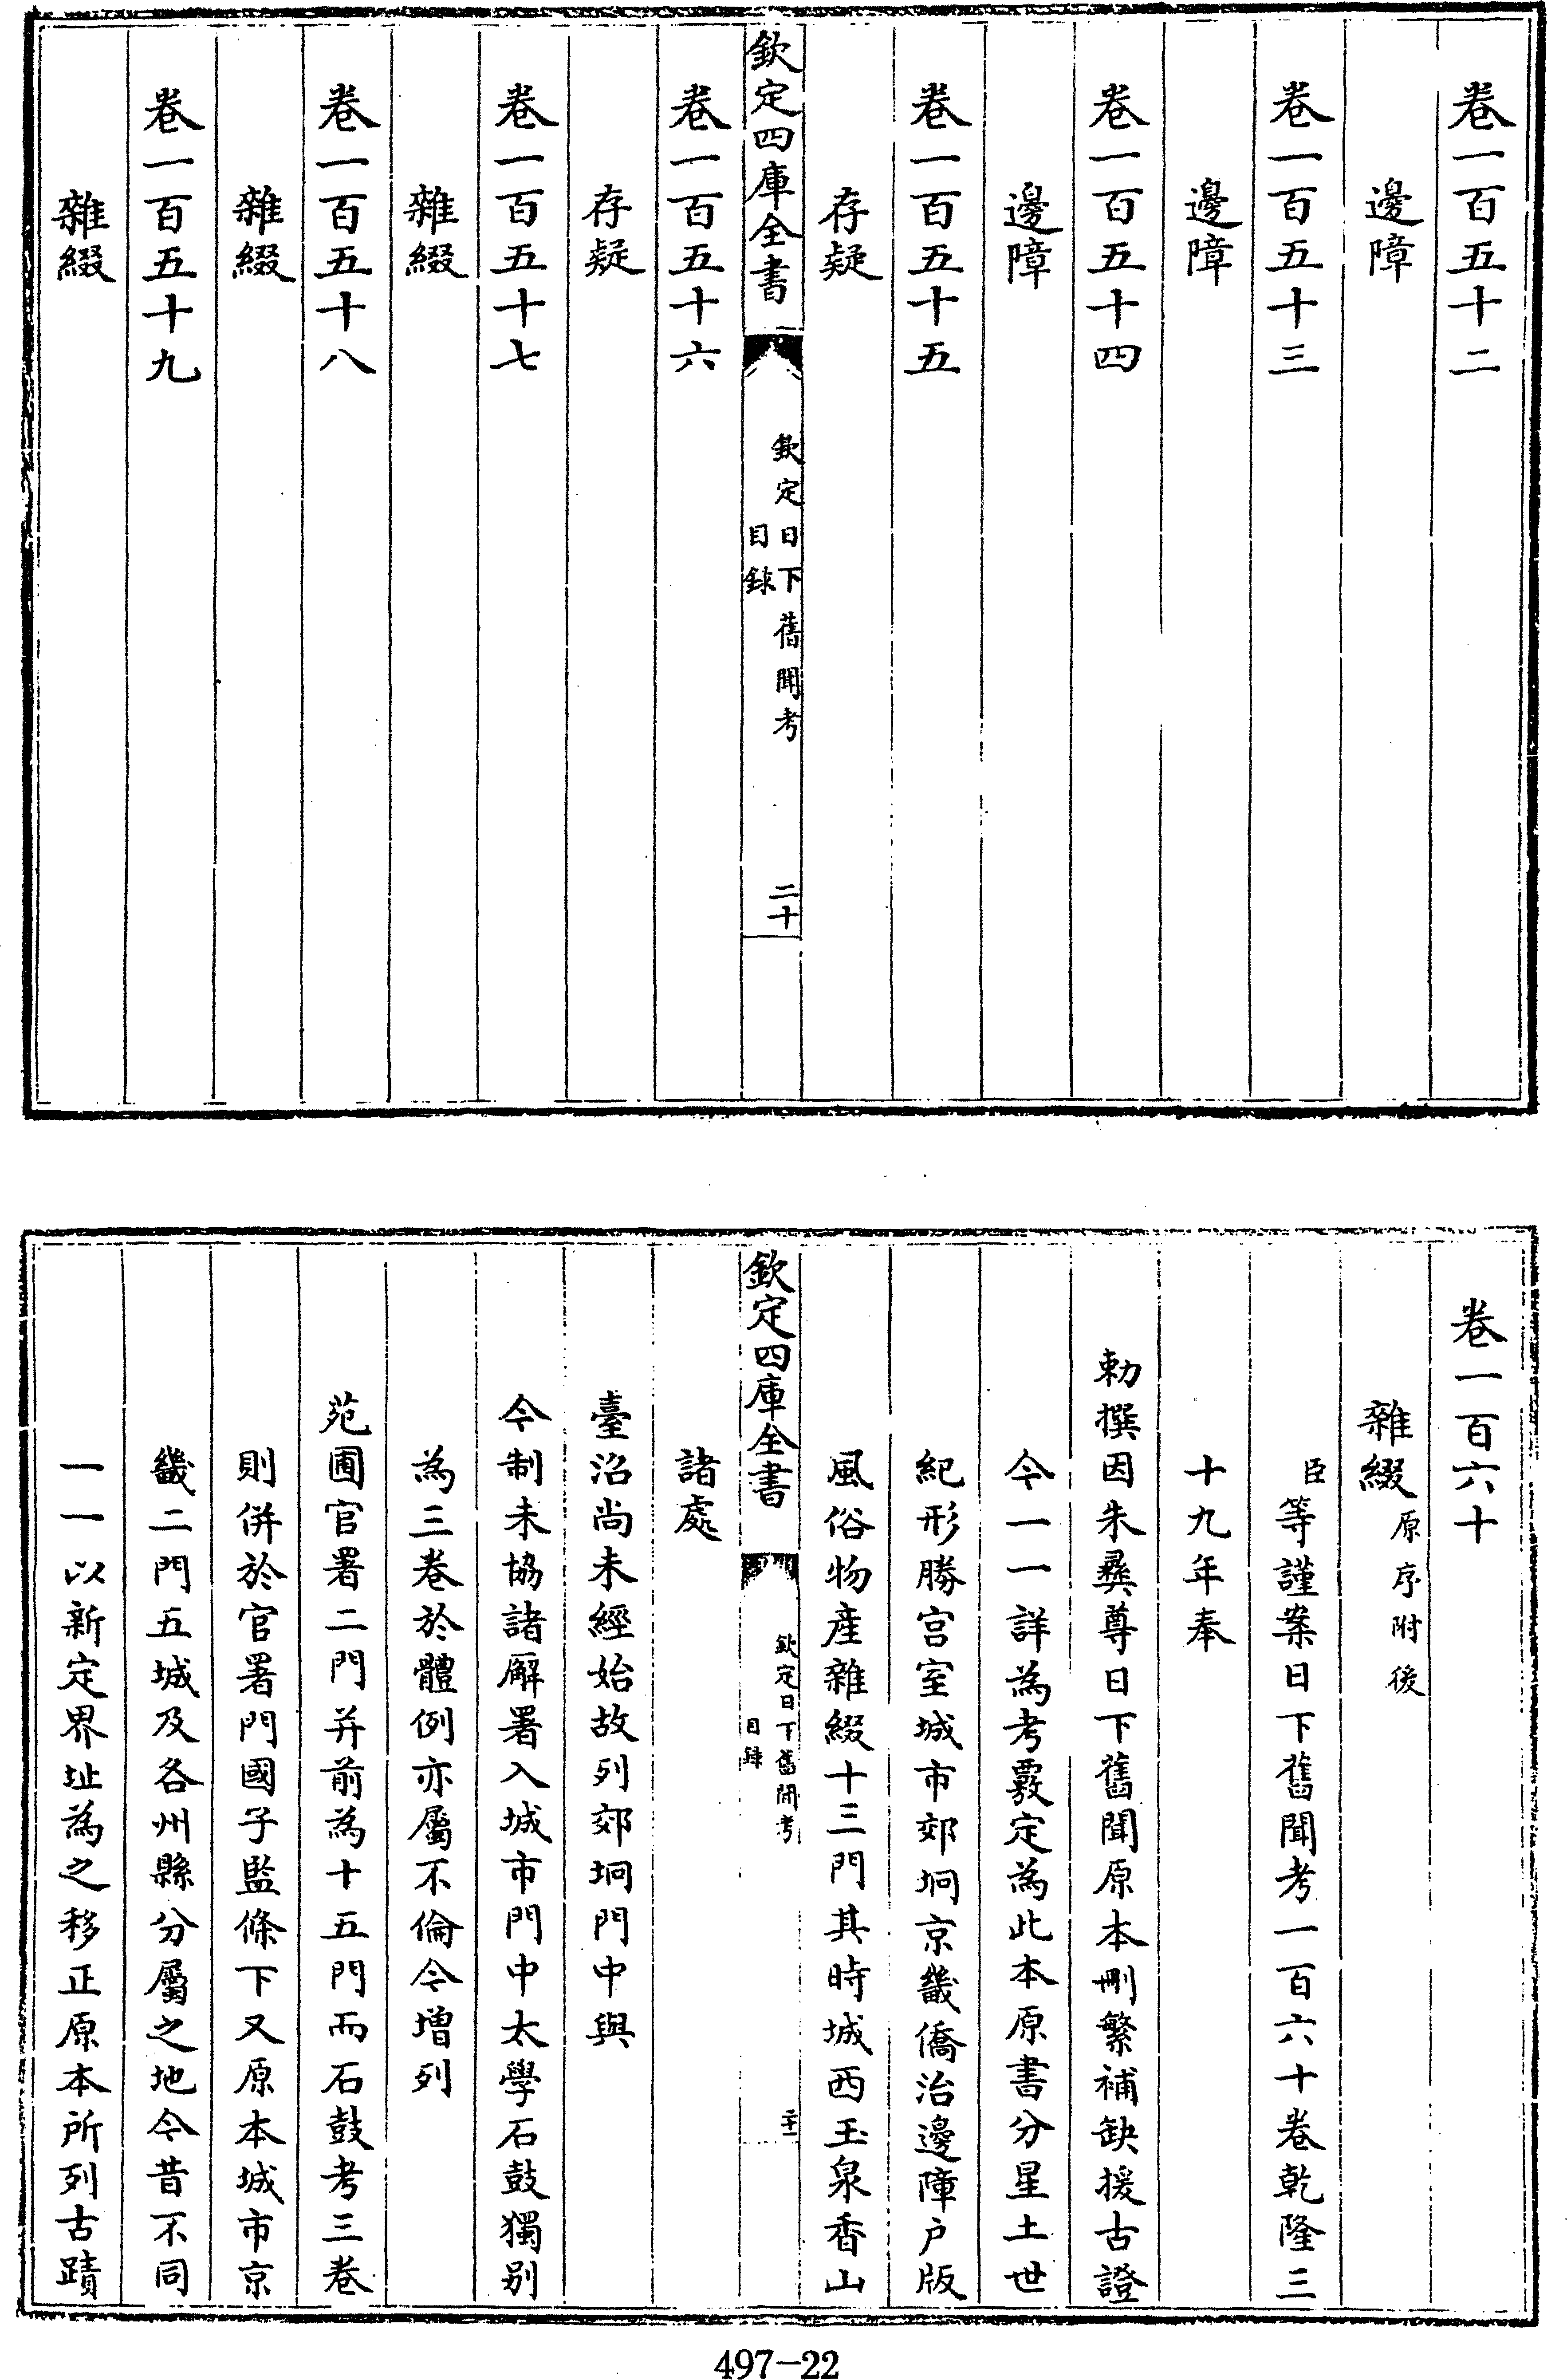 卷一百五十二
邊障
卷一百五十三
邊障
卷一百五十四
邊障
卷一百五十五
存疑
欽定四庫全書
欽定日下舊聞考
目錄
二十
卷一百五十六
存疑
卷一百五十七
雜綴
卷一百五十八
雜綴
卷一百五十九
雜綴
卷一百六十
雜綴原序附後
臣等謹案日下舊聞考一百六十卷乾隆三
十九年奉
勅撰因朱彞尊日下舊聞原本刪繁補缺援古證
今一一詳為考覈定為此本原書分星土世
紀形勝宫室城市郊坰京畿僑治邊障户版
風俗物產雜綴十三門其時城西玉泉香山
欽定四庫全書
欽定日下舊聞考
目錄
二十一
諸處
臺沼尚未經始故列郊坰門中與
今制未協諸廨署入城市門中太學石鼓獨别
為三卷於體例亦屬不倫今增列
苑囿官署二門并前為十五門而石鼓考三卷
則併於官署門國子監條下又原本城市京
畿二門五城及各州縣分屬之地今昔不同
一一以新定界址為之移正原本所列古蹟
497-22